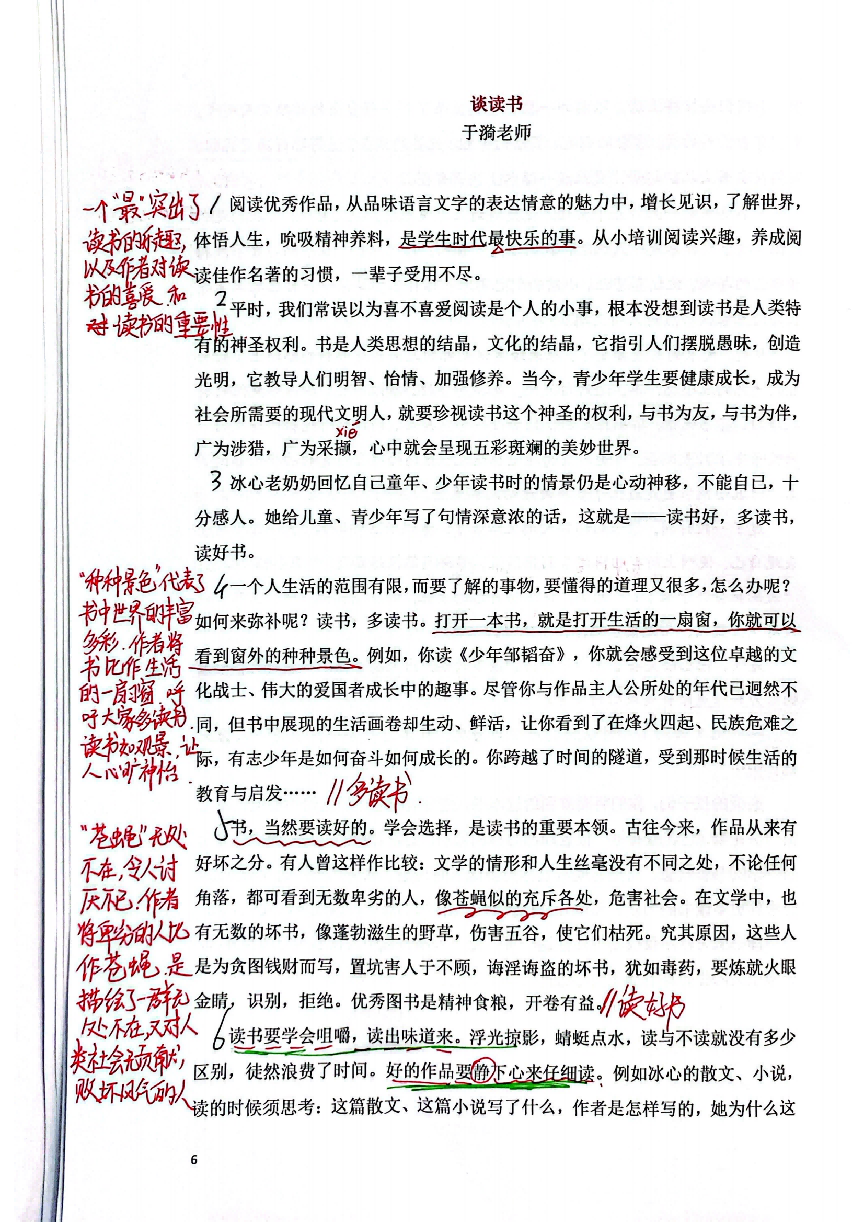 谈读书
于漪老师
1 阅读优秀作品，从品味语言文字的表达情意的魅力中，增长见识，了解世界，
体悟人生，吮吸精神养料，是学生时代最快乐的事。从小培训阅读兴趣，养成阅
读佳作名著的习惯，一辈子受用不尽。
2 平时，我们常误以为喜不喜爱阅读是个人的小事，根本没想到读书是人类特
有的神圣权利。书是人类思想的结晶，文化的结晶，它指引人们摆脱愚昧，创造
光明，它教导人们明智、怡情、加强修养。当今，青少年学生要健康成长，成为
社会所需要的现代文明人，就要珍视读书这个神圣的权利，与书为友，与书为伴，
xié
广为涉猎，广为采撷，心中就会呈现五彩斑斓的美妙世界。
3 冰心老奶奶回忆自己童年、少年读书时的情景仍是心动神移，不能自已，十
分感人。她给儿童、青少年写了句情深意浓的话，这就是——读书好，多读书，
读好书。
4 一个人生活的范围有限，而要了解的事物，要懂得的道理又很多，怎么办呢？
如何来弥补呢？读书，多读书。打开一本书，就是打开生活的一扇窗，你就可以
看到窗外的种种景色。例如，你读《少年邹韬奋》，你就会感受到这位卓越的文
化战士、伟大的爱国者成长中的趣事。尽管你与作品主人公所处的年代已迥然不
同，但书中展现的生活画卷却生动、鲜活，让你看到了在烽火四起、民族危难之
际，有志少年是如何奋斗如何成长的。你跨越了时间的隧道，受到那时候生活的
教育与启发…… //多读书.
5 书，当然要读好的。学会选择，是读书的重要本领。古往今来，作品从来有
好坏之分。有人曾这样作比较：文学的情形和人生丝毫没有不同之处，不论任何
角落，都可看到无数卑劣的人，像苍蝇似的充斥各处，危害社会。在文学中，也
有无数的坏书，像蓬勃滋生的野草，伤害五谷，使它们枯死。究其原因，这些人
是为贪图钱财而写，置坑害人于不顾，诲淫诲盗的坏书，犹如毒药，要炼就火眼
金睛，识别，拒绝。优秀图书是精神食粮，开卷有益。//读好书
6 读书要学会咀嚼，读出味道来。浮光掠影，蜻蜓点水，读与不读就没有多少
区别，徒然浪费了时间。好的作品要静下心来仔细读。例如冰心的散文、小说，
读的时候须思考：这篇散文、这篇小说写了什么，作者是怎样写的，她为什么这
6
一个"最"突出了
读书的乐趣,
以及作者对读
书的喜爱 和
对读书的重要性
"种种景色"代表了
书中世界的丰富
多彩.作者将
书比作生活
的一扇窗 呼
吁大家多读书.
读书如观景,让
人心旷神怡.
"苍蝇"无处
不在,令人讨
厌不已.作者
将卑劣的人比
作苍蝇,是
描绘了一群无
处不在,又对人
类社会无贡献,
败坏风气的人